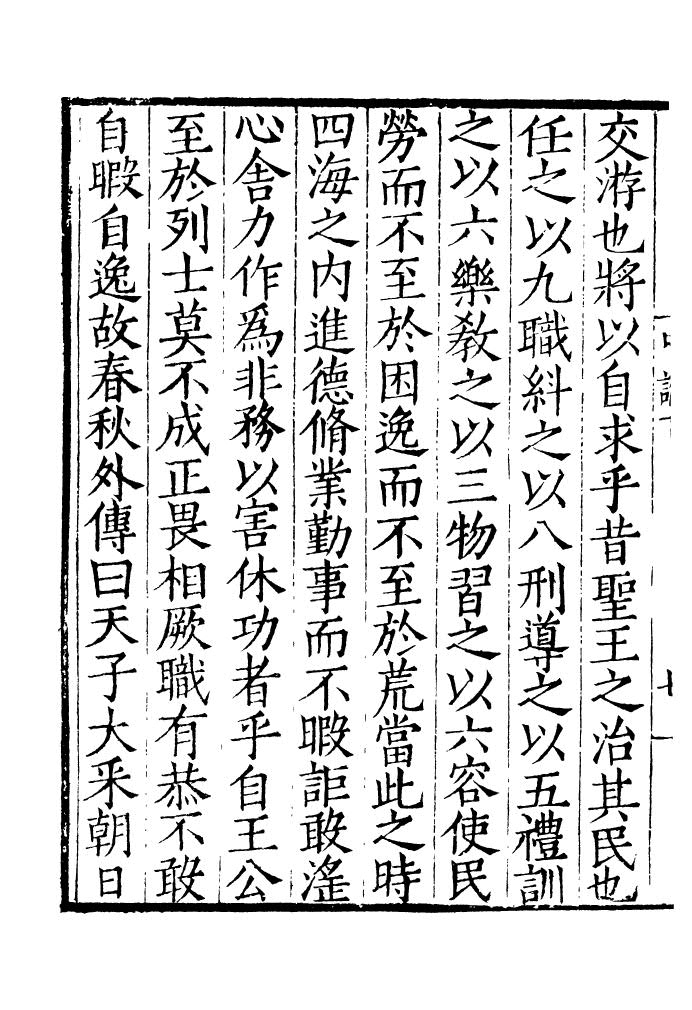 交游也將以自求乎昔聖王之治其民也
任之以九職糾之以八刑導之以五禮訓
之以六樂敎之以三物習之以六容使民
勞而不至於困逸而不至於荒當此之時
四海之内進德脩業勤事而不暇詎敢滛
心舍力作爲非務以害休功者乎自王公
至於列士莫不成正畏相厥職有恭不敢
自暇自逸故春秋外傳曰天子大采朝日